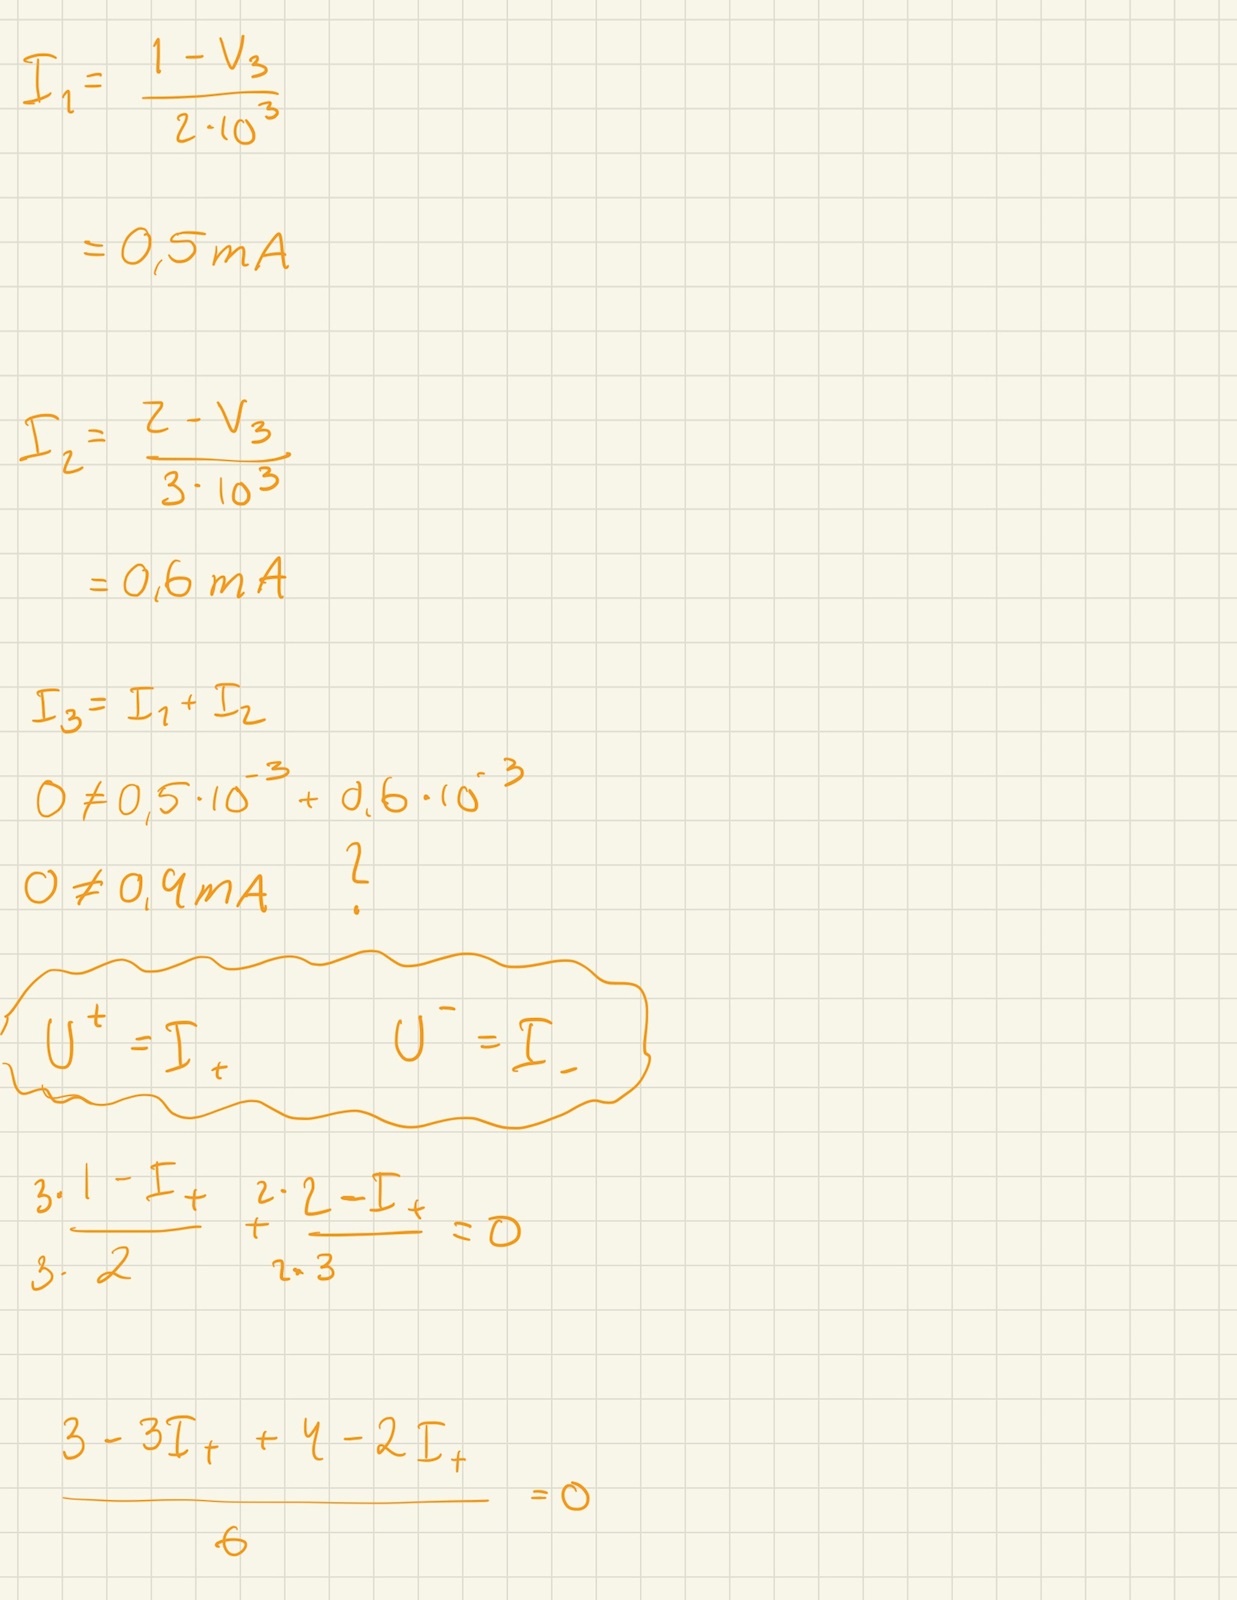 I₁ = (1 - V₃) / (2·10³)
= 0,5 mA
I₂ = (2 - V₃) / (3·10³)
= 0,6 mA
I₃ = I₁ + I₂
0 ≠ 0,5·10⁻³ + 0,6·10⁻³
0 ≠ 0,9 mA ?
U⁺ = I₊ U⁻ = I₋
(3· 1 - I₊) / (3· 2) + (2· 2 - I₊) / (2· 3) = 0
(3 - 3I₊ + 4 - 2I₊) / 6 = 0